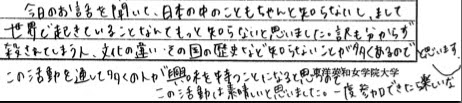 今日のお話を聞いて、日本の中のこともちゃんと知らないし、まして
世界で起きていることなんてもっと知らないと思いました。訳も分からず
殺されてしまう人、文化の違い・その国の歴史など知らないことが多くあるのでと思います。
この活動を通して多くの人が興味を持つことになると思う。東洋英和女学院大学
この活動は素晴いと思いました。一度参加できたら楽しいな